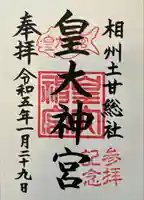 相州土甘総社
皇大神宮
奉拝
令和五年一月二十九日
参拝
記念